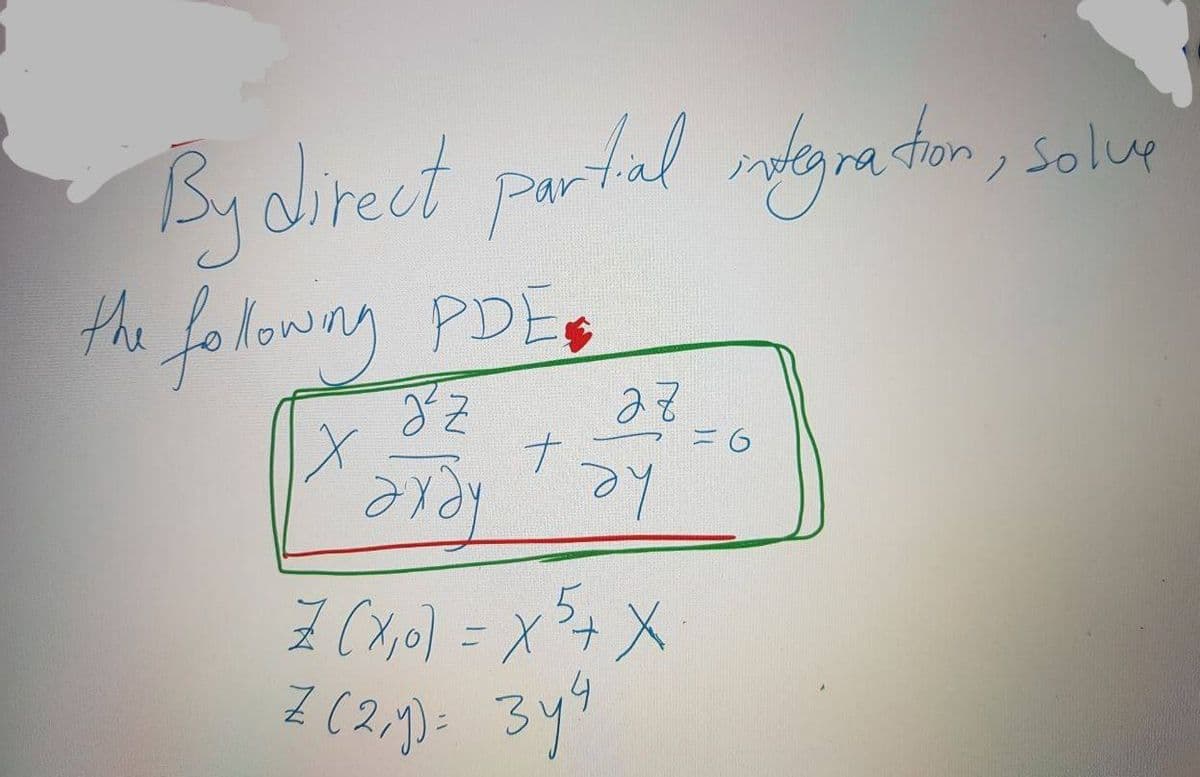 By direct partial integration, solve
the following PDE
x ∂²z/∂x∂y + ∂z/∂y = 0
z(x,0) = x⁵ + x
z(2,y) = 3y⁴